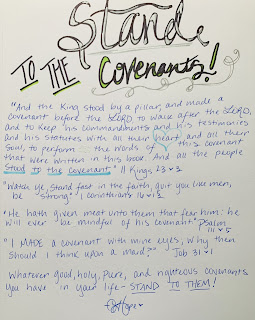 Stand
TO THE COVENANTS!
"And the King stood by a pillar, and made a
covenant before the LORD to walk after the LORD,
and to keep his commandments and his testimonies
and his statutes with all their heart and all their
soul, to perform the words of this covenant
that were written in this book. And all the people
stood to the covenant." II Kings 23 v 3
"Watch ye, stand fast in the faith, quit you like men,
be strong." 1 Corinthians 16 v 13
"He hath given meat unto them that fear him: he
will ever be mindful of his covenant." Psalm
111 v 5
"I MADE a covenant with mine eyes; why then
should I think upon a maid?" Job 31 v 1
Whatever good, holy, pure, and righteous covenants
you have in your life - STAND TO THEM!